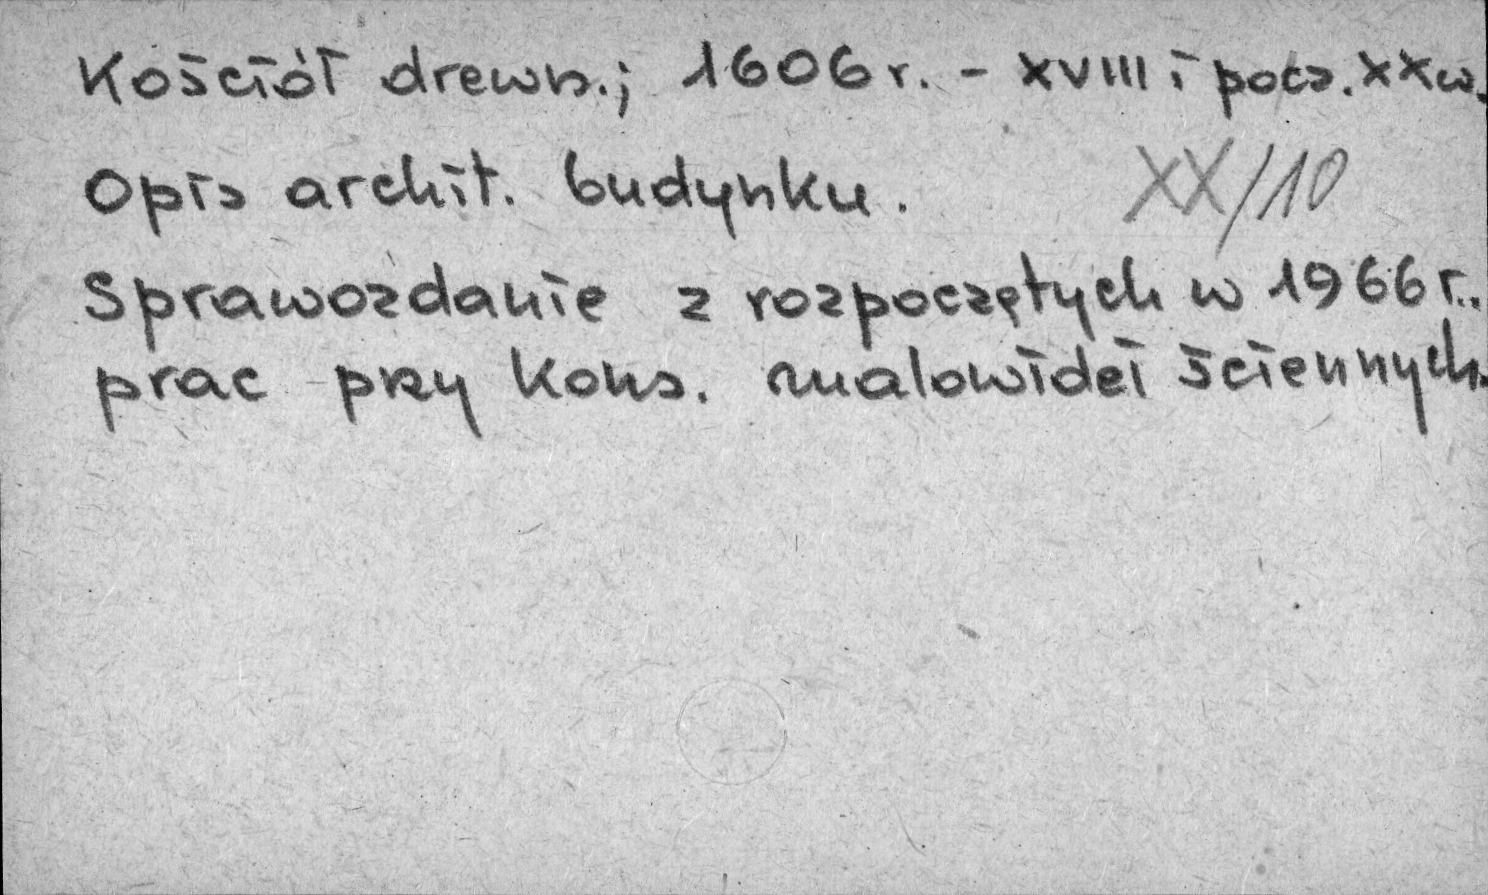 Kościół drewn.; 1606 r. - XVIII i pocz. XX w.
Opis archit. budynku.
XX/10
Sprawozdanie z rozpoczętych w 1966 r.
prac przy kons. malowideł ściennych.